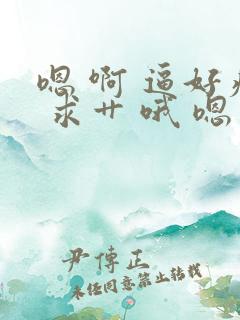 嗯 啊 逼好
求 艹 哦 嗯
尹傅正
未经同意禁止转载